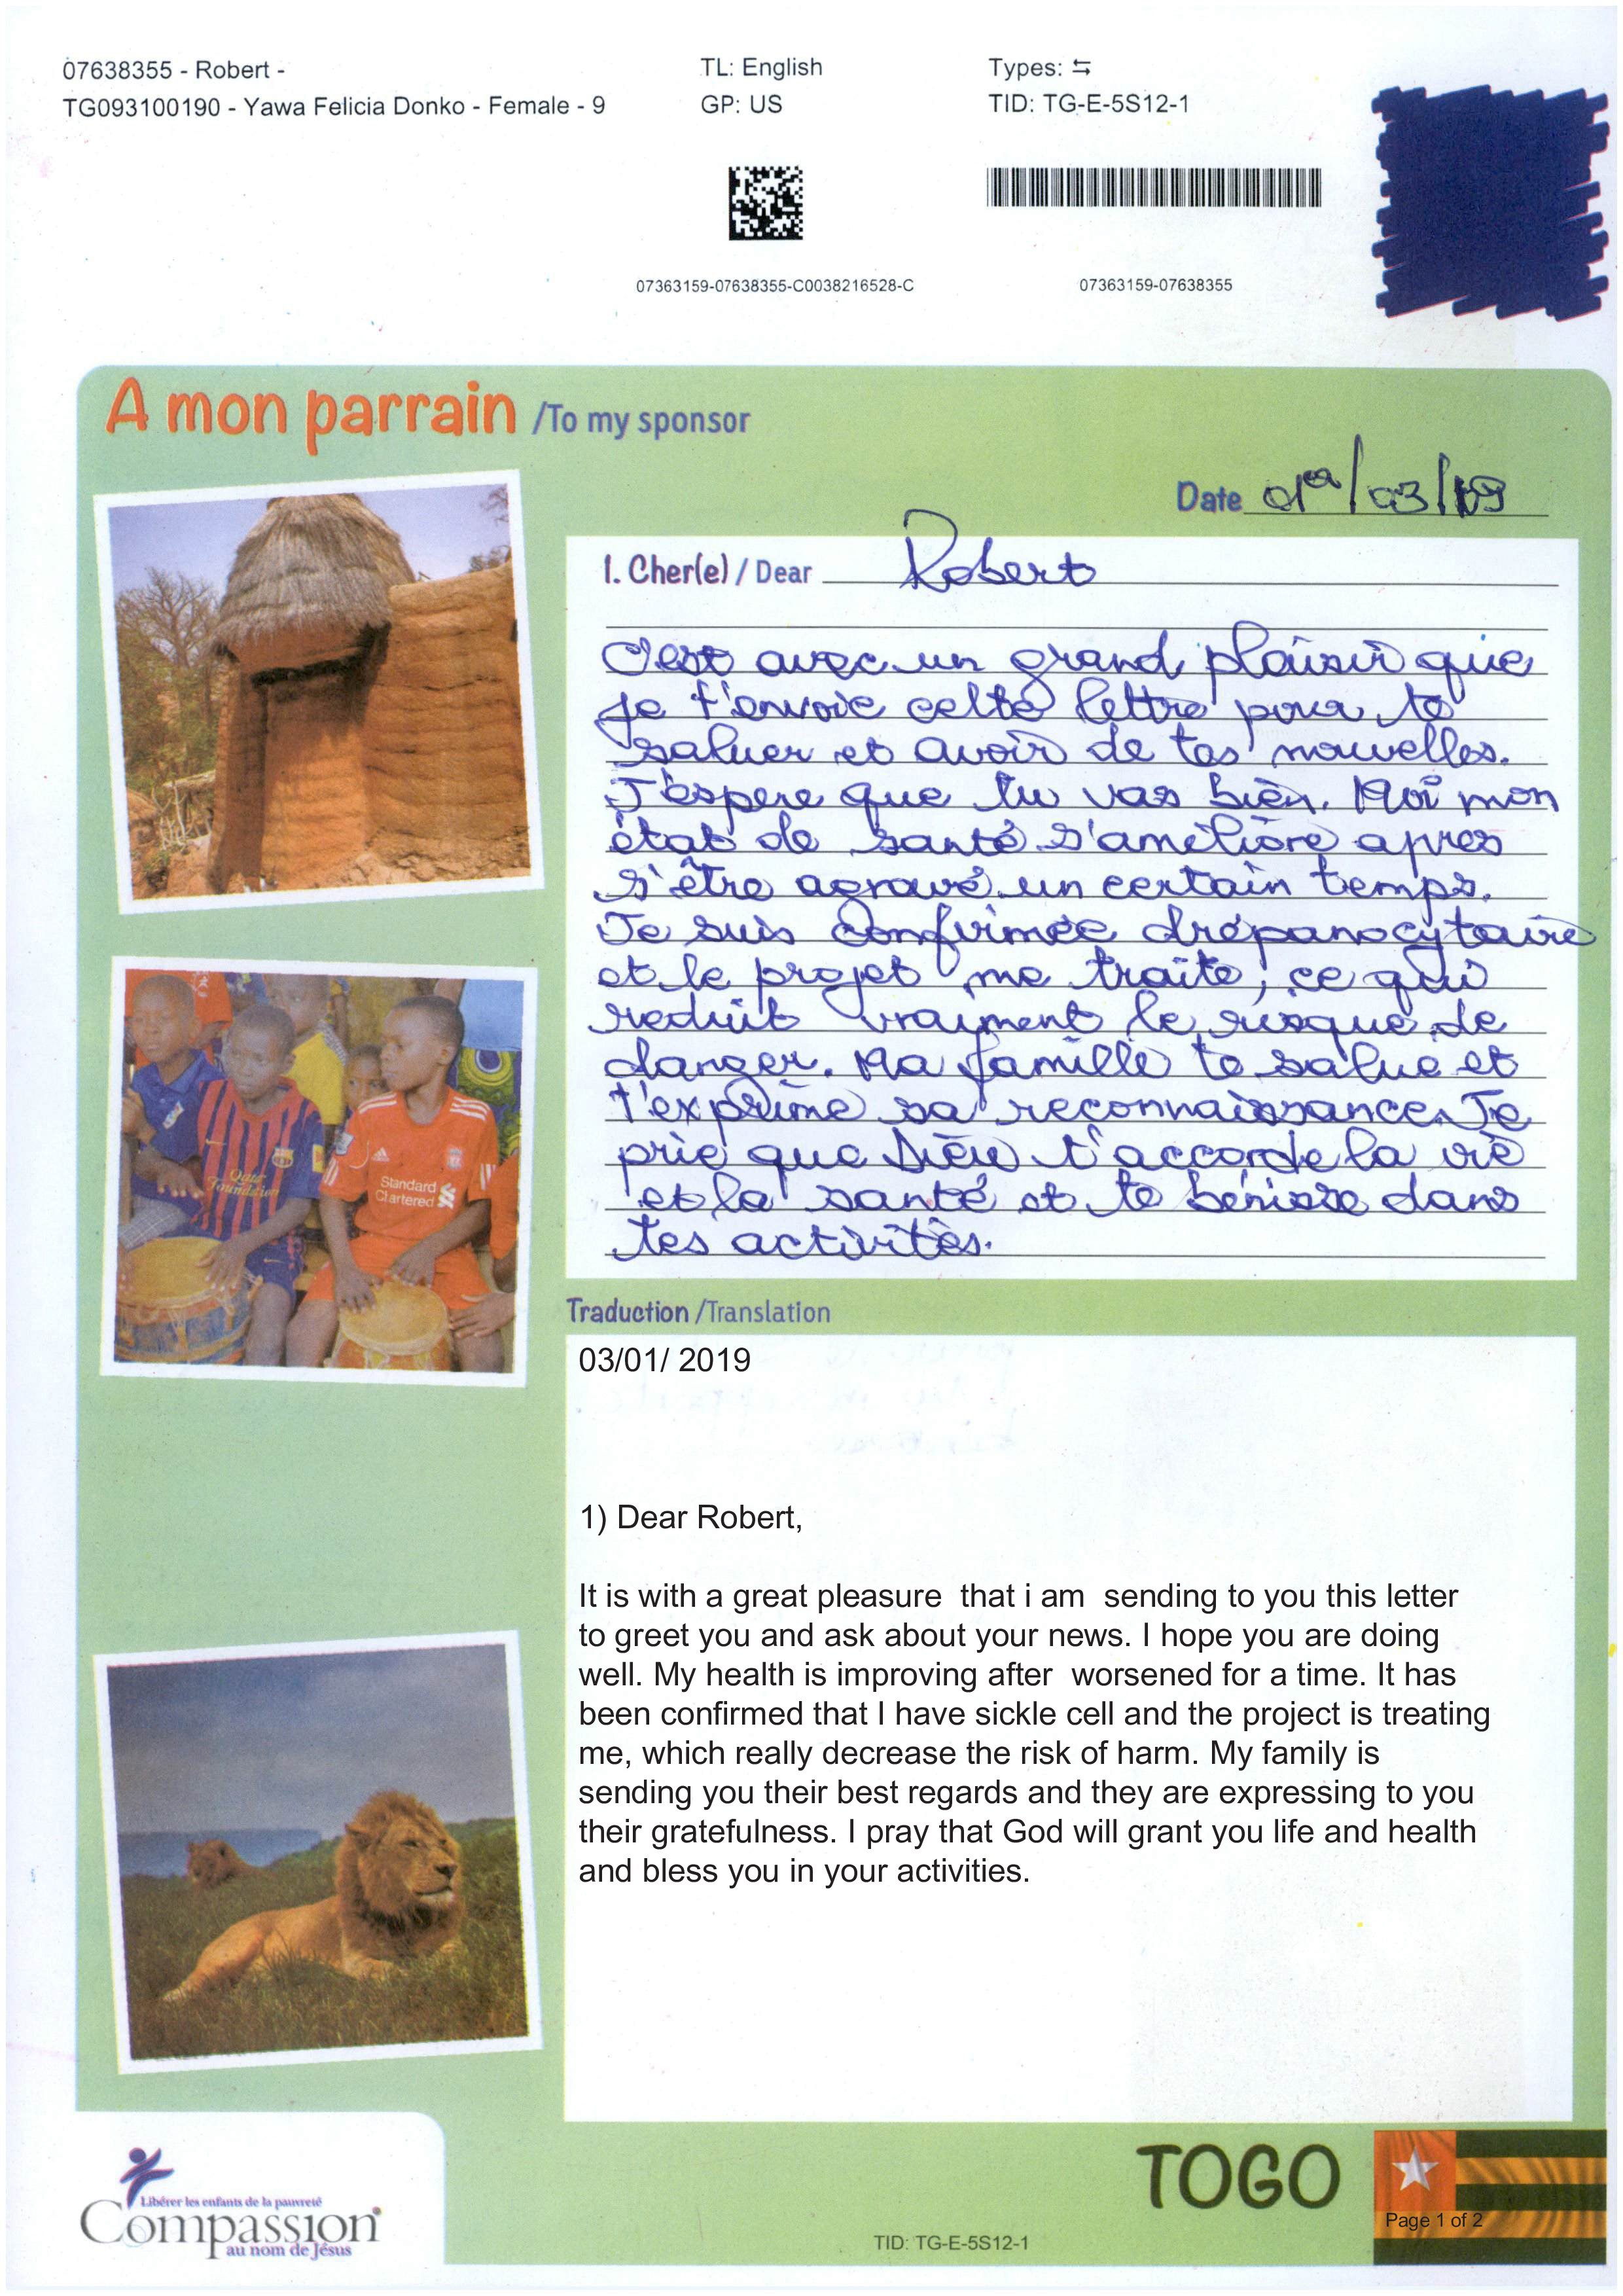 07638355 - Robert -
TG093100190 - Yawa Felicia Donko - Female - 9
TL: English
GP: US
Types: ⇆
TID: TG-E-5S12-1
07363159-07638355-C0038216528-C
07363159-07638355
A mon parrain /To my sponsor
Date 01er/03/19
1. Cher(e) / Dear Robert
C'est avec un grand plaisir que
je t'envoie cette lettre pour te
saluer et avoir de tes nouvelles.
J'espere que tu vas bien. Moi mon
état de santé s'améliore apres
s'être agravé un certain temps.
Je suis confirmée drépanocytaire
et le projet me traite, ce qui
reduit vraiment le risque de
danger. Ma famille te salue et
t'exprime sa reconnaissance. Je
prie que Dieu t'accorde la vie
et la santé et te bénisse dans
tes activités.
Qatar
Foundation
Standard
Chartered
Traduction /Translation
03/01/ 2019
1) Dear Robert,
It is with a great pleasure  that i am  sending to you this letter
to greet you and ask about your news. I hope you are doing
well. My health is improving after  worsened for a time. It has
been confirmed that I have sickle cell and the project is treating
me, which really decrease the risk of harm. My family is
sending you their best regards and they are expressing to you
their gratefulness. I pray that God will grant you life and health
and bless you in your activities.
Libérer les enfants de la pauvreté
Compassion
au nom de Jésus
TOGO
Page 1 of 2
TID: TG-E-5S12-1